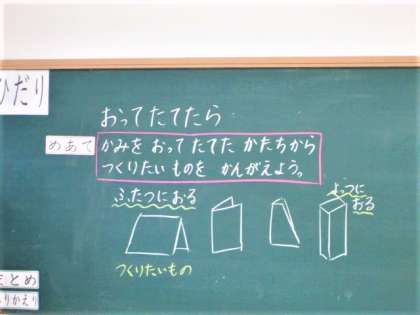 ひだり
おってたてたら
めあて
かみを おって たてた かたちから
つくりたい ものを かんがえよう。
ふたつに おる
よっつに
おる
つくりたいもの
まとめ
ふりかえり